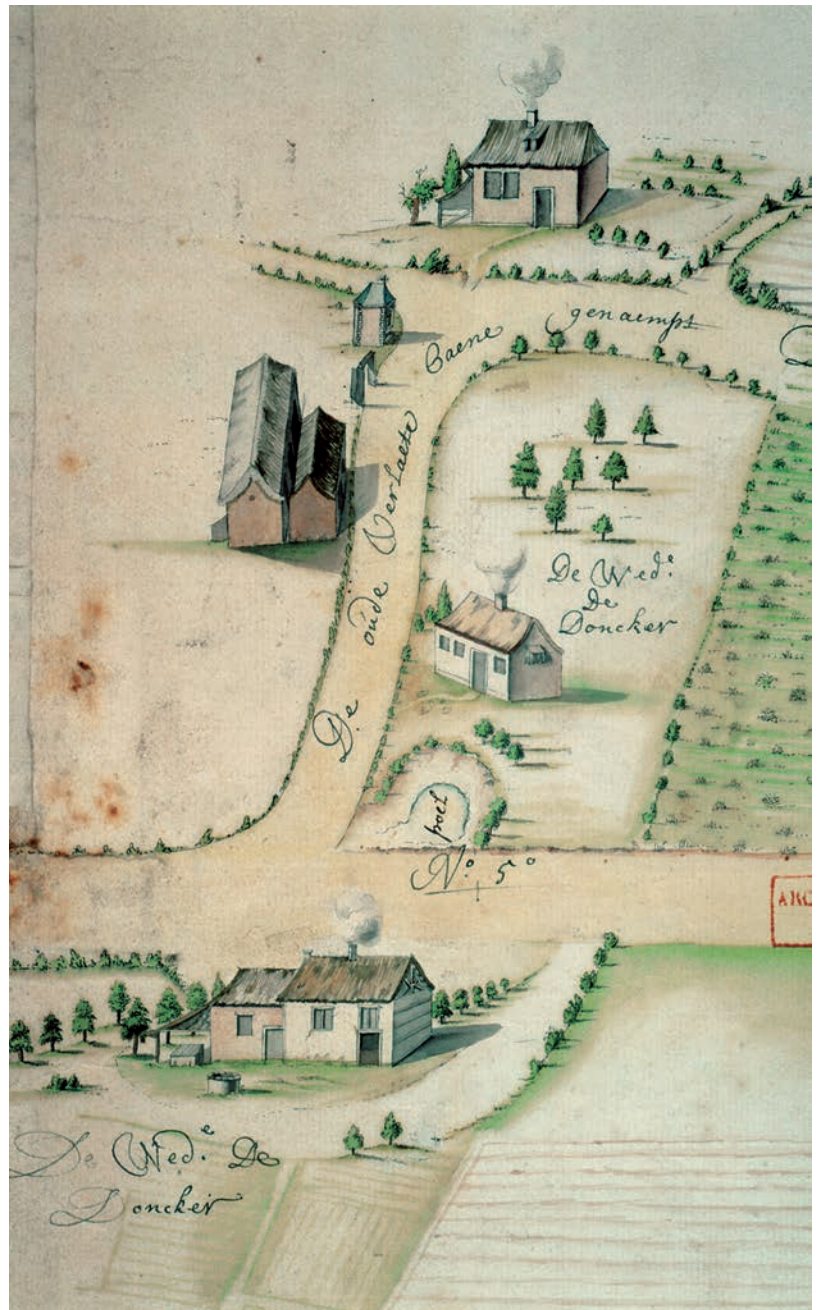 De oude Verlaete Baene genaempt
De Wed.e
De
Doncker
poel
No. 5o
ARC
De Wed.e De
Doncker